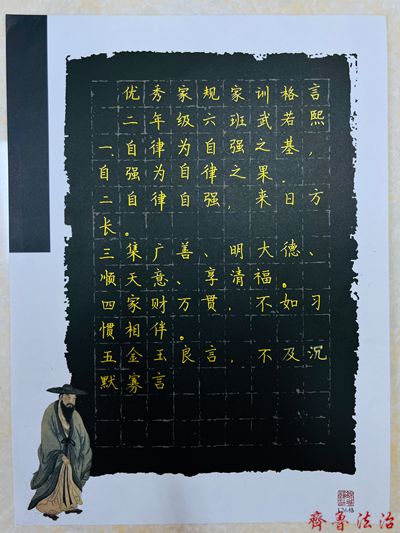 优秀家规家训格言
二年级六班武若熙
一.自律为自强之基，
自强为自律之果.
二自律自强，来日方
长。
三集广善、明大德、
顺天意、享清福。
四家财万贯，不如习
惯相伴。
五金玉良言，不及沉
默寡言
齊魯法治